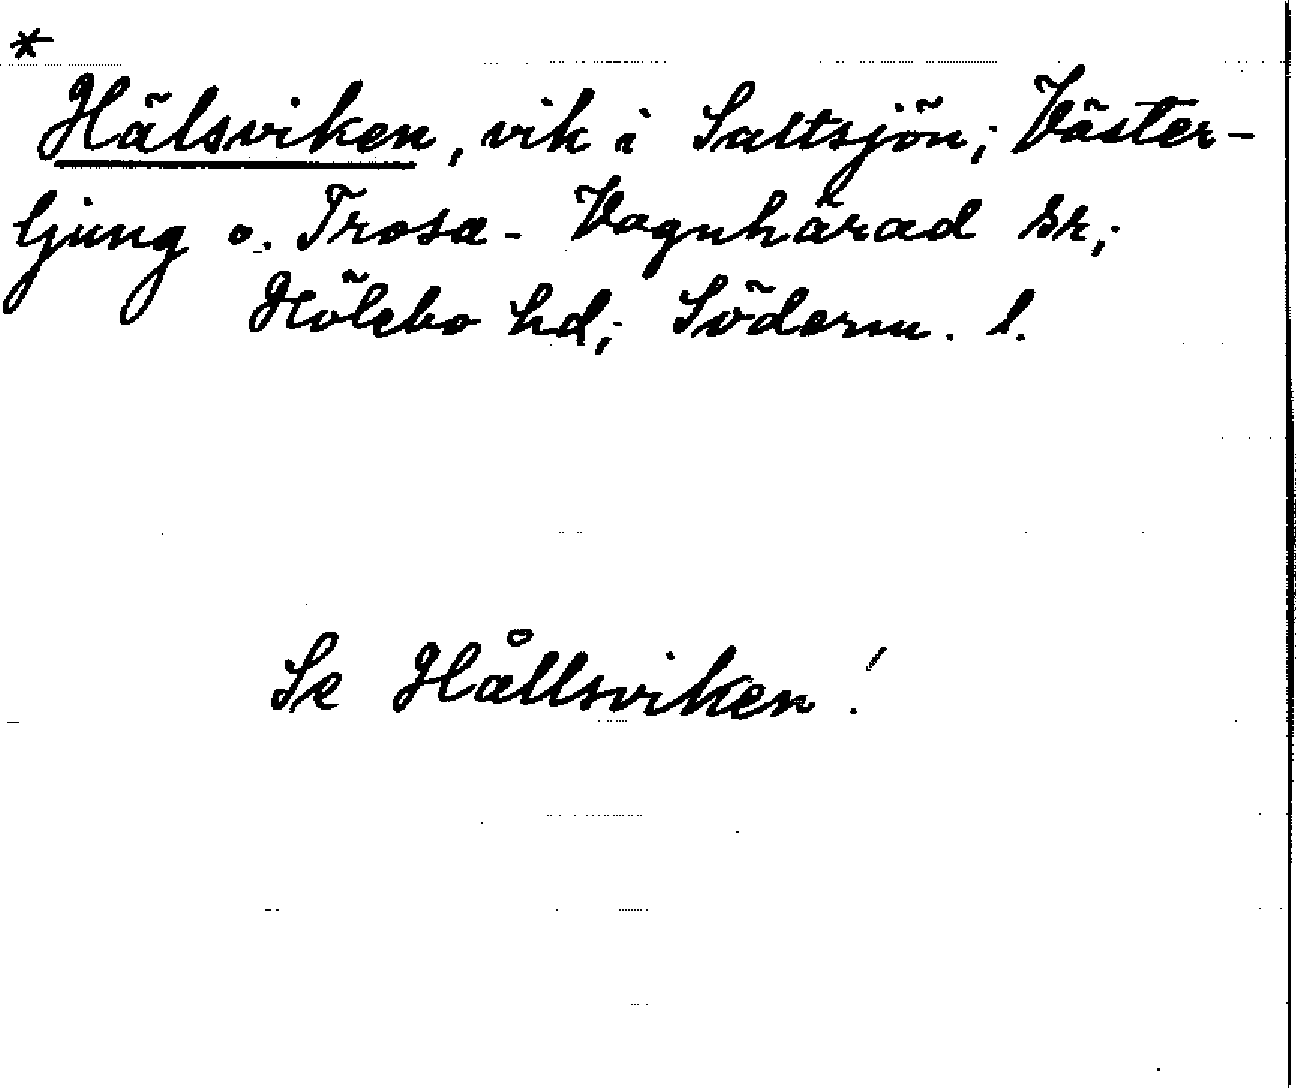 *
Hälsviken, vik i Saltsjön; Väster-
ljung o. Trosa-Vagnhärad sr;
Hölebo hd; Söderm. l.
Se Hållsviken!